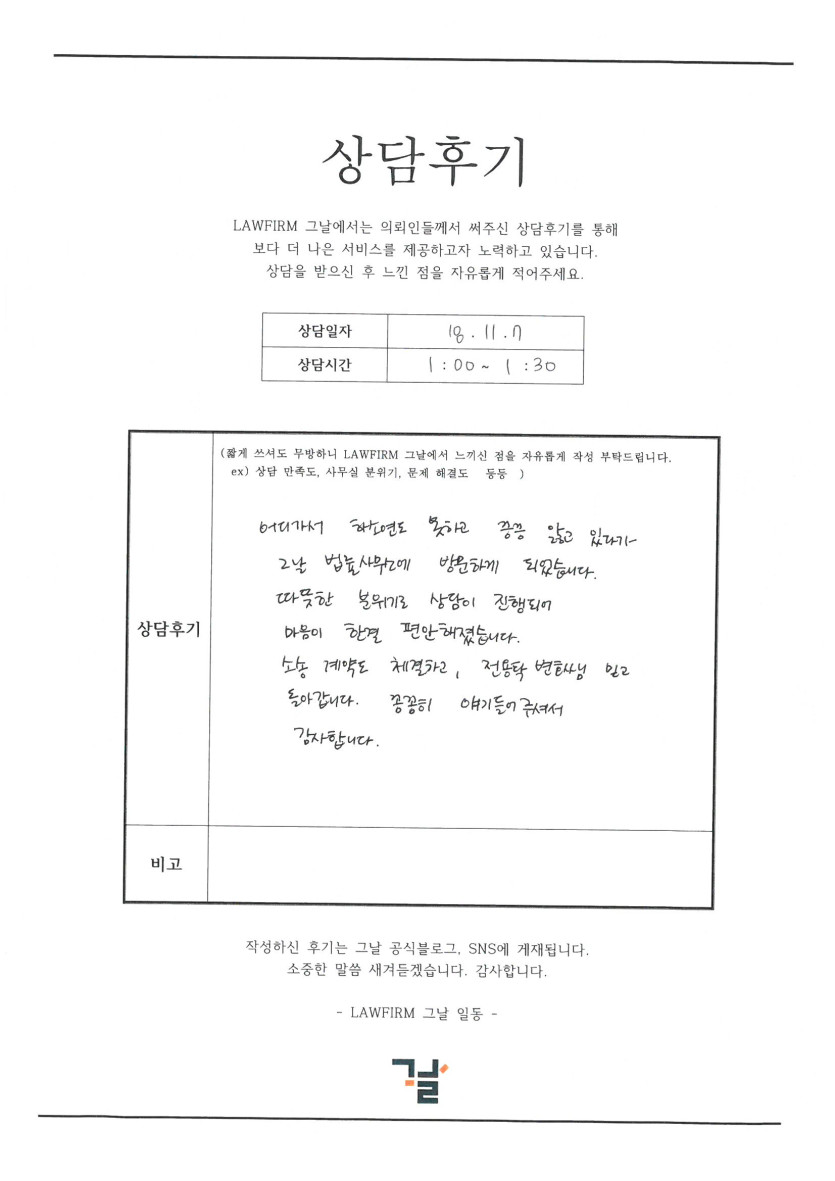 상담후기
LAWFIRM 그날에서는 의뢰인들께서 써주신 상담후기를 통해
보다 더 나은 서비스를 제공하고자 노력하고 있습니다.
상담을 받으신 후 느낀 점을 자유롭게 적어주세요.
상담일자 18.11.7
상담시간 1:00 ~ 1:30
(짧게 쓰셔도 무방하니 LAWFIRM 그날에서 느끼신 점을 자유롭게 작성 부탁드립니다.
ex) 상담 만족도, 사무실 분위기, 문제 해결도 등등 )
상담후기
어디가서 하소연도 못하고 끙끙 앓고 있다가
그날 법률사무소에 방문하게 되었습니다.
따뜻한 분위기로 상담이 진행되어
마음이 한결 편안해졌습니다.
소송 계약도 체결하고, 전용탁 변호사님 믿고
돌아갑니다. 꼼꼼히 얘기들어주셔서
감사합니다.
비고
작성하신 후기는 그날 공식블로그, SNS에 게재됩니다.
소중한 말씀 새겨듣겠습니다. 감사합니다.
- LAWFIRM 그날 일동 -
그날